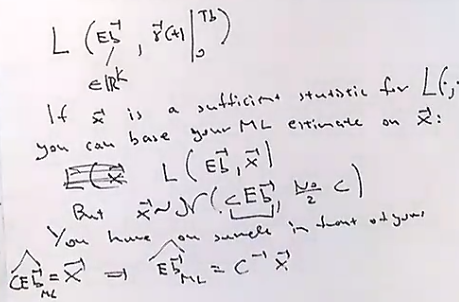 L ( E b⃗ , r⃗(t) |₀^{Tb} )
∈ ℝ^K
If x⃗ is a sufficient statistic for L(·,
you can base your ML estimate on x⃗:
L ( E b⃗ , x⃗ )
But x⃗ ~ N ( C E b⃗ , N₀/2 C )
You have on sample in front of you,
\widehat{C E b⃗}_{ML} = x⃗ ⇒ \widehat{E b⃗}_{ML} = C⁻¹ x⃗